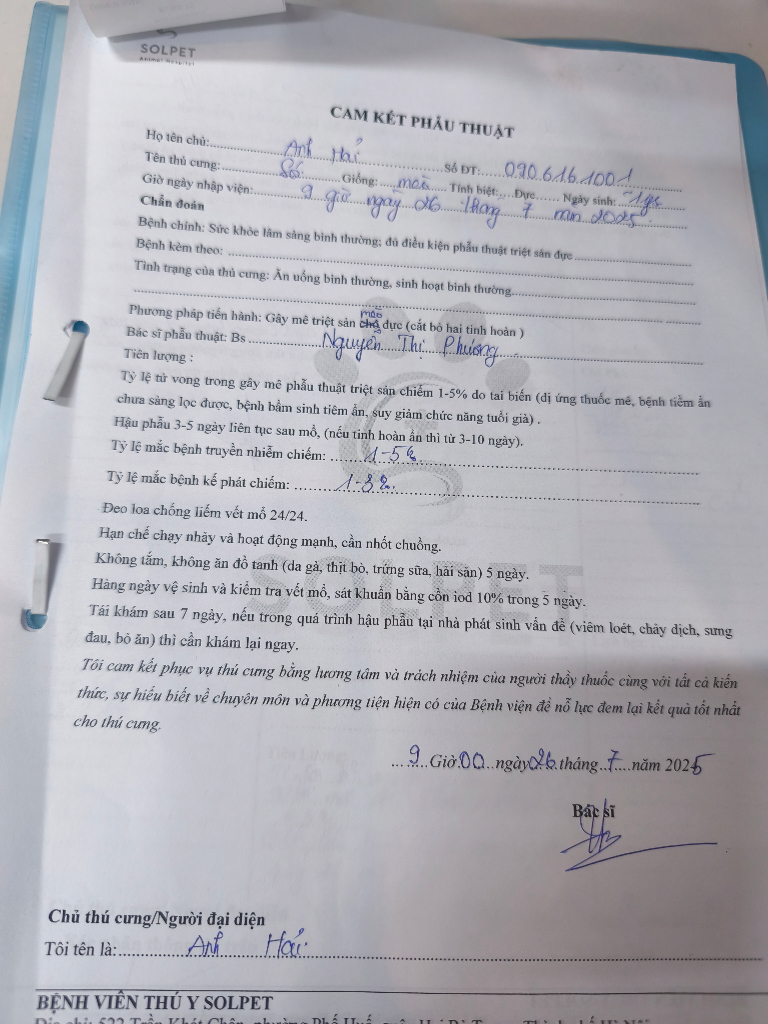 SOLPET
Animal Hospital
CAM KẾT PHẪU THUẬT
Họ tên chủ: Anh Hải Số ĐT: 090.616.1001
Tên thú cưng: Giống: mèo Tính biệt: Đực Ngày sinh:
Giờ ngày nhập viện: 9 giờ ngày 26 tháng 7 năm 2025
Chẩn đoán
Bệnh chính: Sức khỏe lâm sàng bình thường; đủ điều kiện phẫu thuật triệt sản đực
Bệnh kèm theo:
Tình trạng của thú cưng: Ăn uống bình thường, sinh hoạt bình thường
Phương pháp tiến hành: Gây mê triệt sản chó mèo đực (cắt bỏ hai tinh hoàn )
Bác sĩ phẫu thuật: Bs Nguyễn Thị Phương
Tiên lượng :
Tỷ lệ tử vong trong gây mê phẫu thuật triệt sản chiếm 1-5% do tai biến (dị ứng thuốc mê, bệnh tiềm ẩn
chưa sàng lọc được, bệnh bẩm sinh tiềm ẩn, suy giảm chức năng tuổi già) .
Hậu phẫu 3-5 ngày liên tục sau mổ, (nếu tinh hoàn ẩn thì từ 3-10 ngày).
Tỷ lệ mắc bệnh truyền nhiễm chiếm: 1-5%
Tỷ lệ mắc bệnh kế phát chiếm: 1-3%
Đeo loa chống liếm vết mổ 24/24.
Hạn chế chạy nhảy và hoạt động mạnh, cần nhốt chuồng.
Không tắm, không ăn đồ tanh (da gà, thịt bò, trứng sữa, hải sản) 5 ngày.
Hàng ngày vệ sinh và kiểm tra vết mổ, sát khuẩn bằng cồn iod 10% trong 5 ngày.
Tái khám sau 7 ngày, nếu trong quá trình hậu phẫu tại nhà phát sinh vấn đề (viêm loét, chảy dịch, sưng
đau, bỏ ăn) thì cần khám lại ngay.
Tôi cam kết phục vụ thú cưng bằng lương tâm và trách nhiệm của người thầy thuốc cùng với tất cả kiến
thức, sự hiểu biết về chuyên môn và phương tiện hiện có của Bệnh viện để nỗ lực đem lại kết quả tốt nhất
cho thú cưng.
9 Giờ 00 ngày 26 tháng 7 năm 2025
Bác sĩ
Chủ thú cưng/Người đại diện
Tôi tên là: Anh Hải
BỆNH VIÊN THÚ Y SOLPET
SOLPET